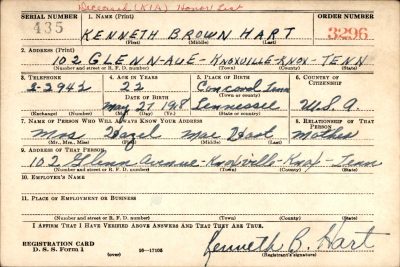 Deceased (KIA) Honor List
SERIAL NUMBER 1. NAME (Print) ORDER NUMBER
435 KENNETH BROWN HART 3296
(First) (Middle) (Last)
2. ADDRESS (Print)
102 GLENN-AVE-KNOXVILLE-KNOX-TENN
(Number and street or R. F. D. number) (Town) (County) (State)
3. TELEPHONE 4. AGE IN YEARS 5. PLACE OF BIRTH 6. COUNTRY OF CITIZENSHIP
3-2942 22 Concord Tenn
DATE OF BIRTH (Town or county)
May 27 1918 Tennessee U.S.A
(Exchange) (Number) (Mo.) (Day) (Yr.) (State or country)
7. NAME OF PERSON WHO WILL ALWAYS KNOW YOUR ADDRESS 8. RELATIONSHIP OF THAT PERSON
Mrs Hazel Mae Hart Mother
(Mr., Mrs., Miss) (First) (Middle) (Last)
9. ADDRESS OF THAT PERSON
102 Glenn Avenue-Knoxville-Knox-Tenn
(Number and street or R. F. D. number) (Town) (County) (State)
10. EMPLOYER'S NAME
11. PLACE OF EMPLOYMENT OR BUSINESS
(Number and street or R. F. D. number) (Town) (County) (State)
I AFFIRM THAT I HAVE VERIFIED ABOVE ANSWERS AND THAT THEY ARE TRUE.
REGISTRATION CARD Kenneth B. Hart
D. S. S. Form 1 (over) 16-17105 (Registrant's signature)